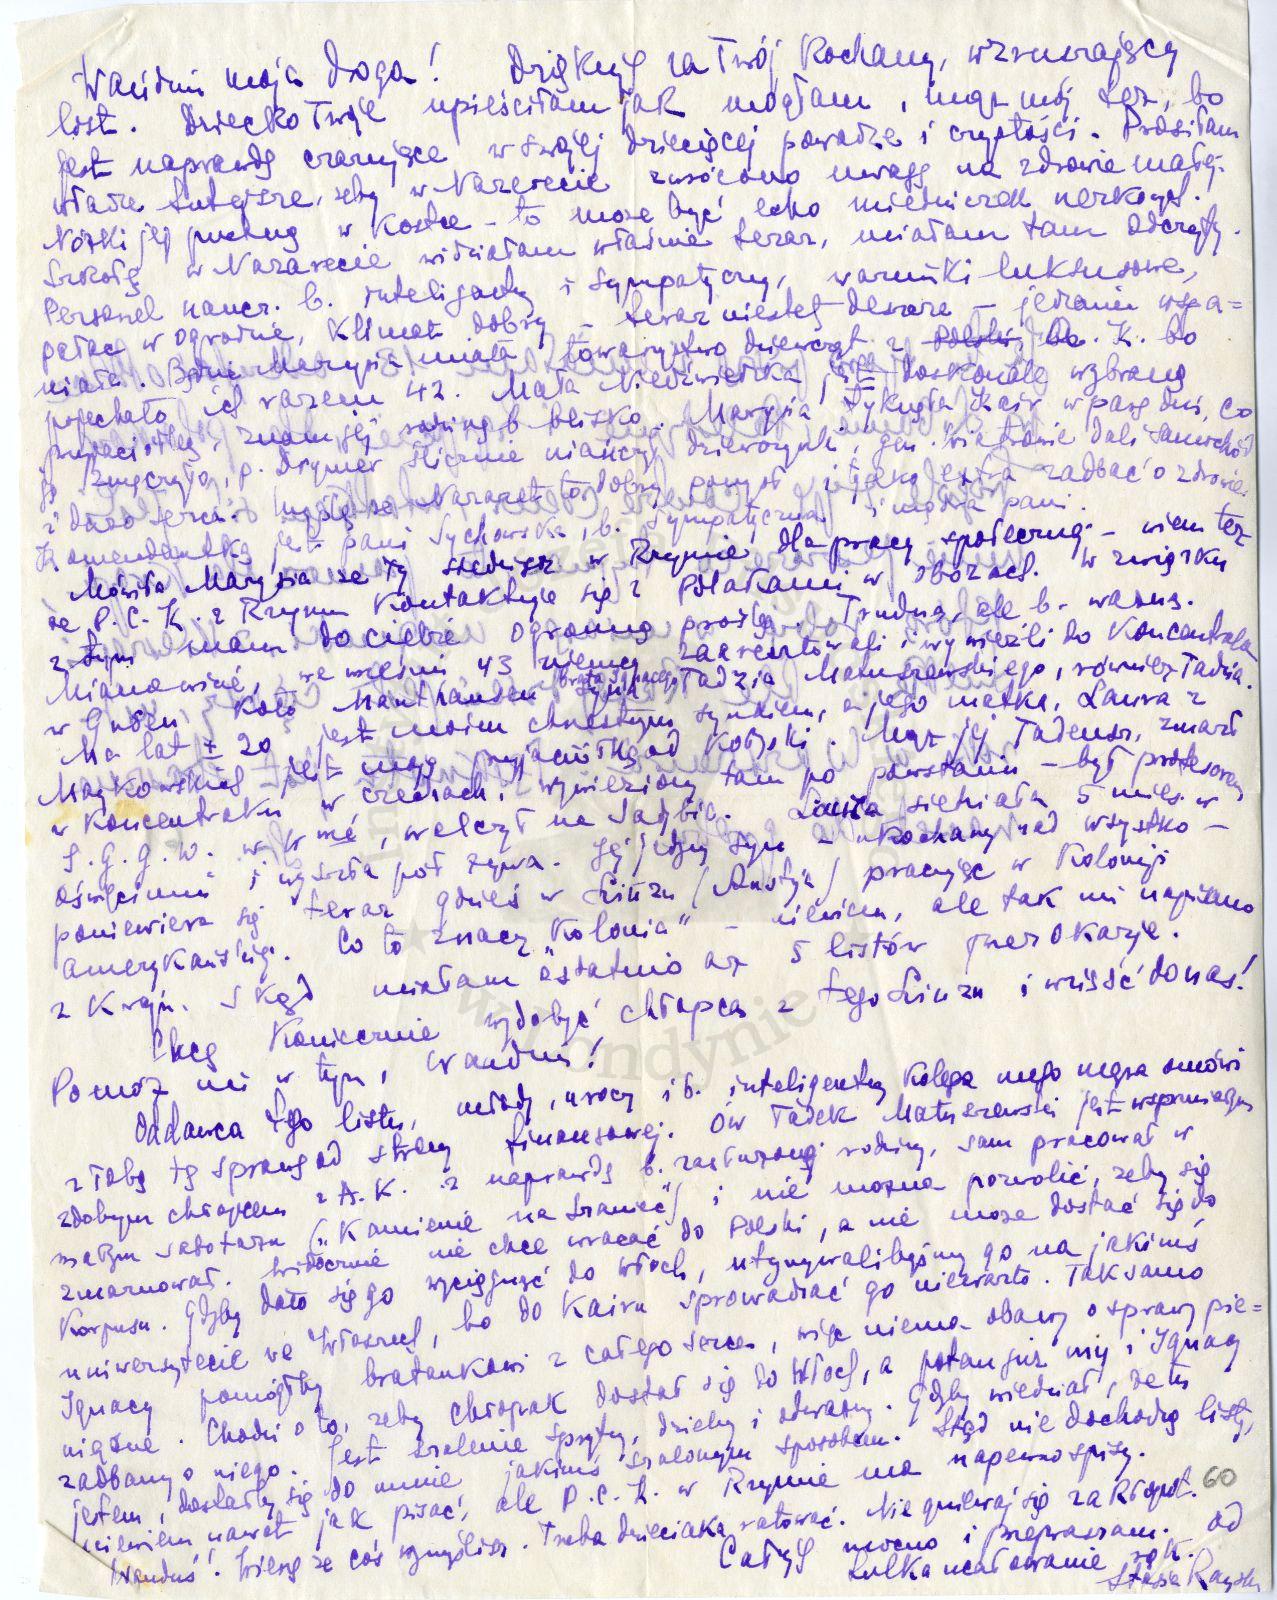 Wandziu moja droga! Dziękuję za Twój kochany, wzruszający
list. Dziecko Twoje upieściłam jak mogłam, mąż mój też, bo
jest naprawdę czarujące w swojej dziecięcej powadze i czystości. Prosiłam
władze tutejsze, żeby w Nazarecie zwrócono uwagę na zdrowie małej.
Nóżki jej puchną w kostce – to może być echo miedniczek nerkowych.
Szkołę w Nazarecie widziałam właśnie teraz, miałam tam odczyty.
Personel naucz. b. inteligentny i sympatyczny, warunki luksusowe,
pałac w ogrodzie, klimat dobry – teraz niestety deszcze – jedzenie wspa=
niałe. Będzie Marysia miała towarzystwo dziewcząt z A. K. bo
pojechało ich razem 42. Mała Niedźwiecka, doskonale wybrana
przyjaciółka, znam jej rodzinę b. blisko. Marysia zwiedziła Kair w parę dni, co
ją zmęczyło, p. Drymer ślicznie niańczył dziewczynki, gen. Wiatr dali samochód
i dużo serca. Myślę że Nazaret to dobry pomysł i tylko trzeba zadbać o zdrowie.
Komendantką jest pani Sychowska, b. sympatyczna i mądra pani.
Mówiła Marysia że Ty siedzisz w Rzymie dla pracy społecznej – wiem też
że P.C.K. z Rzymu kontaktuje się z Polakami w obozach. W związku
z tym mam do ciebie ogromną prośbę. Trudną, ale b. ważną.
Mianowicie, we wrześniu 43 niemcy zaaresztowali i wywieźli do koncentraka
w Gusen koło Mauthausen syna brata Ignacego Tadzia Matuszewskiego, również Tadzia.
Ma lat ± 20, jest moim chrzestnym synkiem, a jego matka, Laura z
Maykowskich jest moją przyjaciółką od kołyski. Mąż jej Tadeusz, zmarł
w koncentraku w Czechach, wywieziony tam po powstaniu – był profesorem
S.G.G.W. w W-wie, walczył na Sadybie. Laura siedziała 5 mies. w
Oświęcimiu i wyszła pół żywa. Jej jedyny syn – ukochany nad wszystko –
poniewiera się teraz gdzieś w Linzu (Austyja) pracując w Kolonji
amerykańskiej. Co to znaczy „Kolonia" – nie wiem, ale tak mi napisano
z Kraju. Skąd miałam ostatnio aż 5 listów przez okazję.
Chcę koniecznie wydobyć chłopca z tego Linzu i wziąść do nas!
Pomóż mi w tym, Wandziu!
Oddawca tego listu, młody, uroczy i b. inteligentny kolega mego męża omówi
z Tobą tę sprawę od strony finansowej. Ów Tadek Matuszewski jest wspaniałym
zdolnym chłopcem z A.K. z naprawdę b. zasłużonej rodziny, sam pracował w
małym sabotażu („Kamienie na szaniec") i nie można pozwolić, żeby się
zmarnował. Widocznie nie chce wracać do Polski, a nie może dostać się do
Korpusu. Gdyby dało się go wyciągnąć do Włoch, utrzymywalibyśmy go na jakimś
uniwersytecie we Włoszech, bo do Kairu sprowadzać go niewarto. Tak samo
Ignacy pomógłby bratankowi z całego serca, więc niema obawy o sprawy pie=
niężne. Chodzi o to, żeby chłopak dostał się do Włoch, a potem już my i Ignacy
zadbamy o niego. Jest szalenie sprytny, dzielny i odważny. Gdyby wiedział, że tu
jestem, dostałby się do mnie jakimś szalonym sposobem. Stąd nie dochodzą listy,
niewiem nawet jak pisać, ale P.C.K. w Rzymie ma napewno spisy.
Wanduś! Wierzę że coś wymyślisz. Trzeba dzieciaka ratować. Nie gniewaj się za kłopot. 60
Całuję mocno i przepraszam. Od
Lulka ucałowanie rąk.